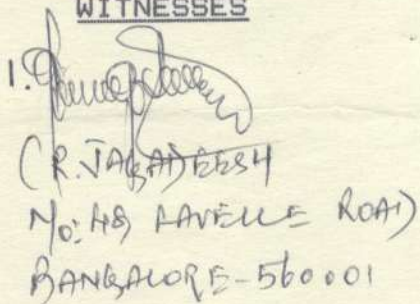 WITNESSES
1.
(R. JAGADEESH
No: 48, LAVELLE ROAD)
BANGALORE-560001